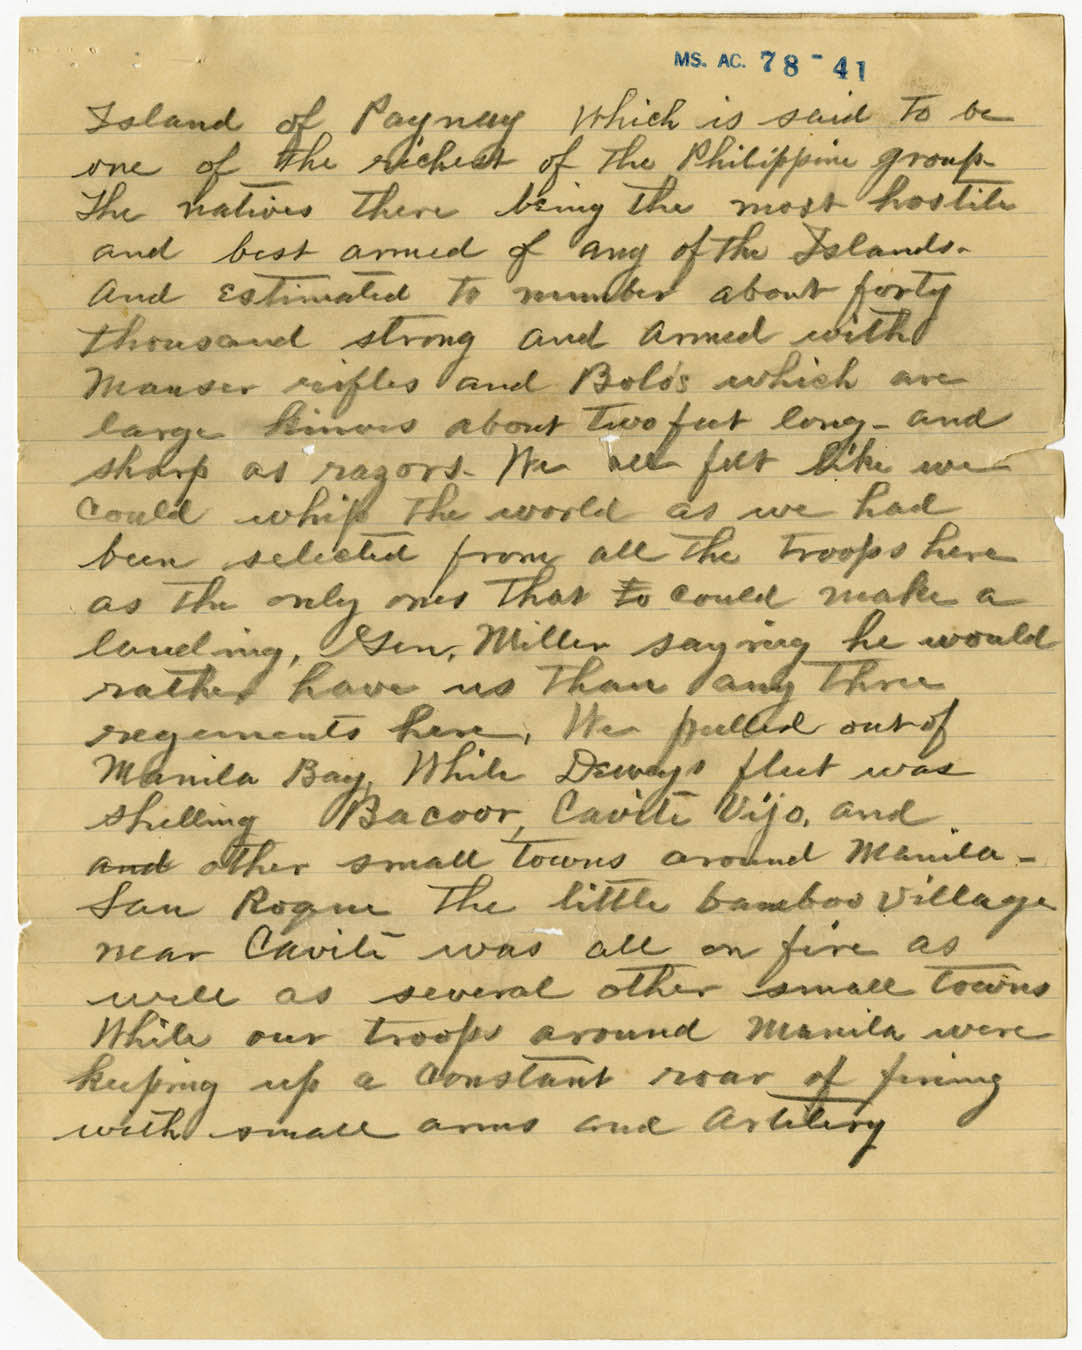 MS. AC. 78-41
Island of Paynay Which is said to be
one of the richest of the Philippine group-
The natives there being the most hostile
and best armed of any of the Islands-
And estimated to number about forty
thousand strong and armed with
Mauser rifles and Bolo's which are
large knives about two feet long- and
sharp as razors- We all felt like we
could whip the world as we had
been selected from all the troops here
as the only ones that to could make a
landing, Gen, Miller saying he would
rather have us than any three
regements here, We pulled out of
Manila Bay, While Deweys fleet was
shelling Bacoor, Cavite Vijo, and
and other small towns around Manila-
San Roque the little bamboo village
near Cavite was all on fire as
well as several other small towns
While our troops around Manila were
keeping up a constant roar of fireing
with small arms and Artilery